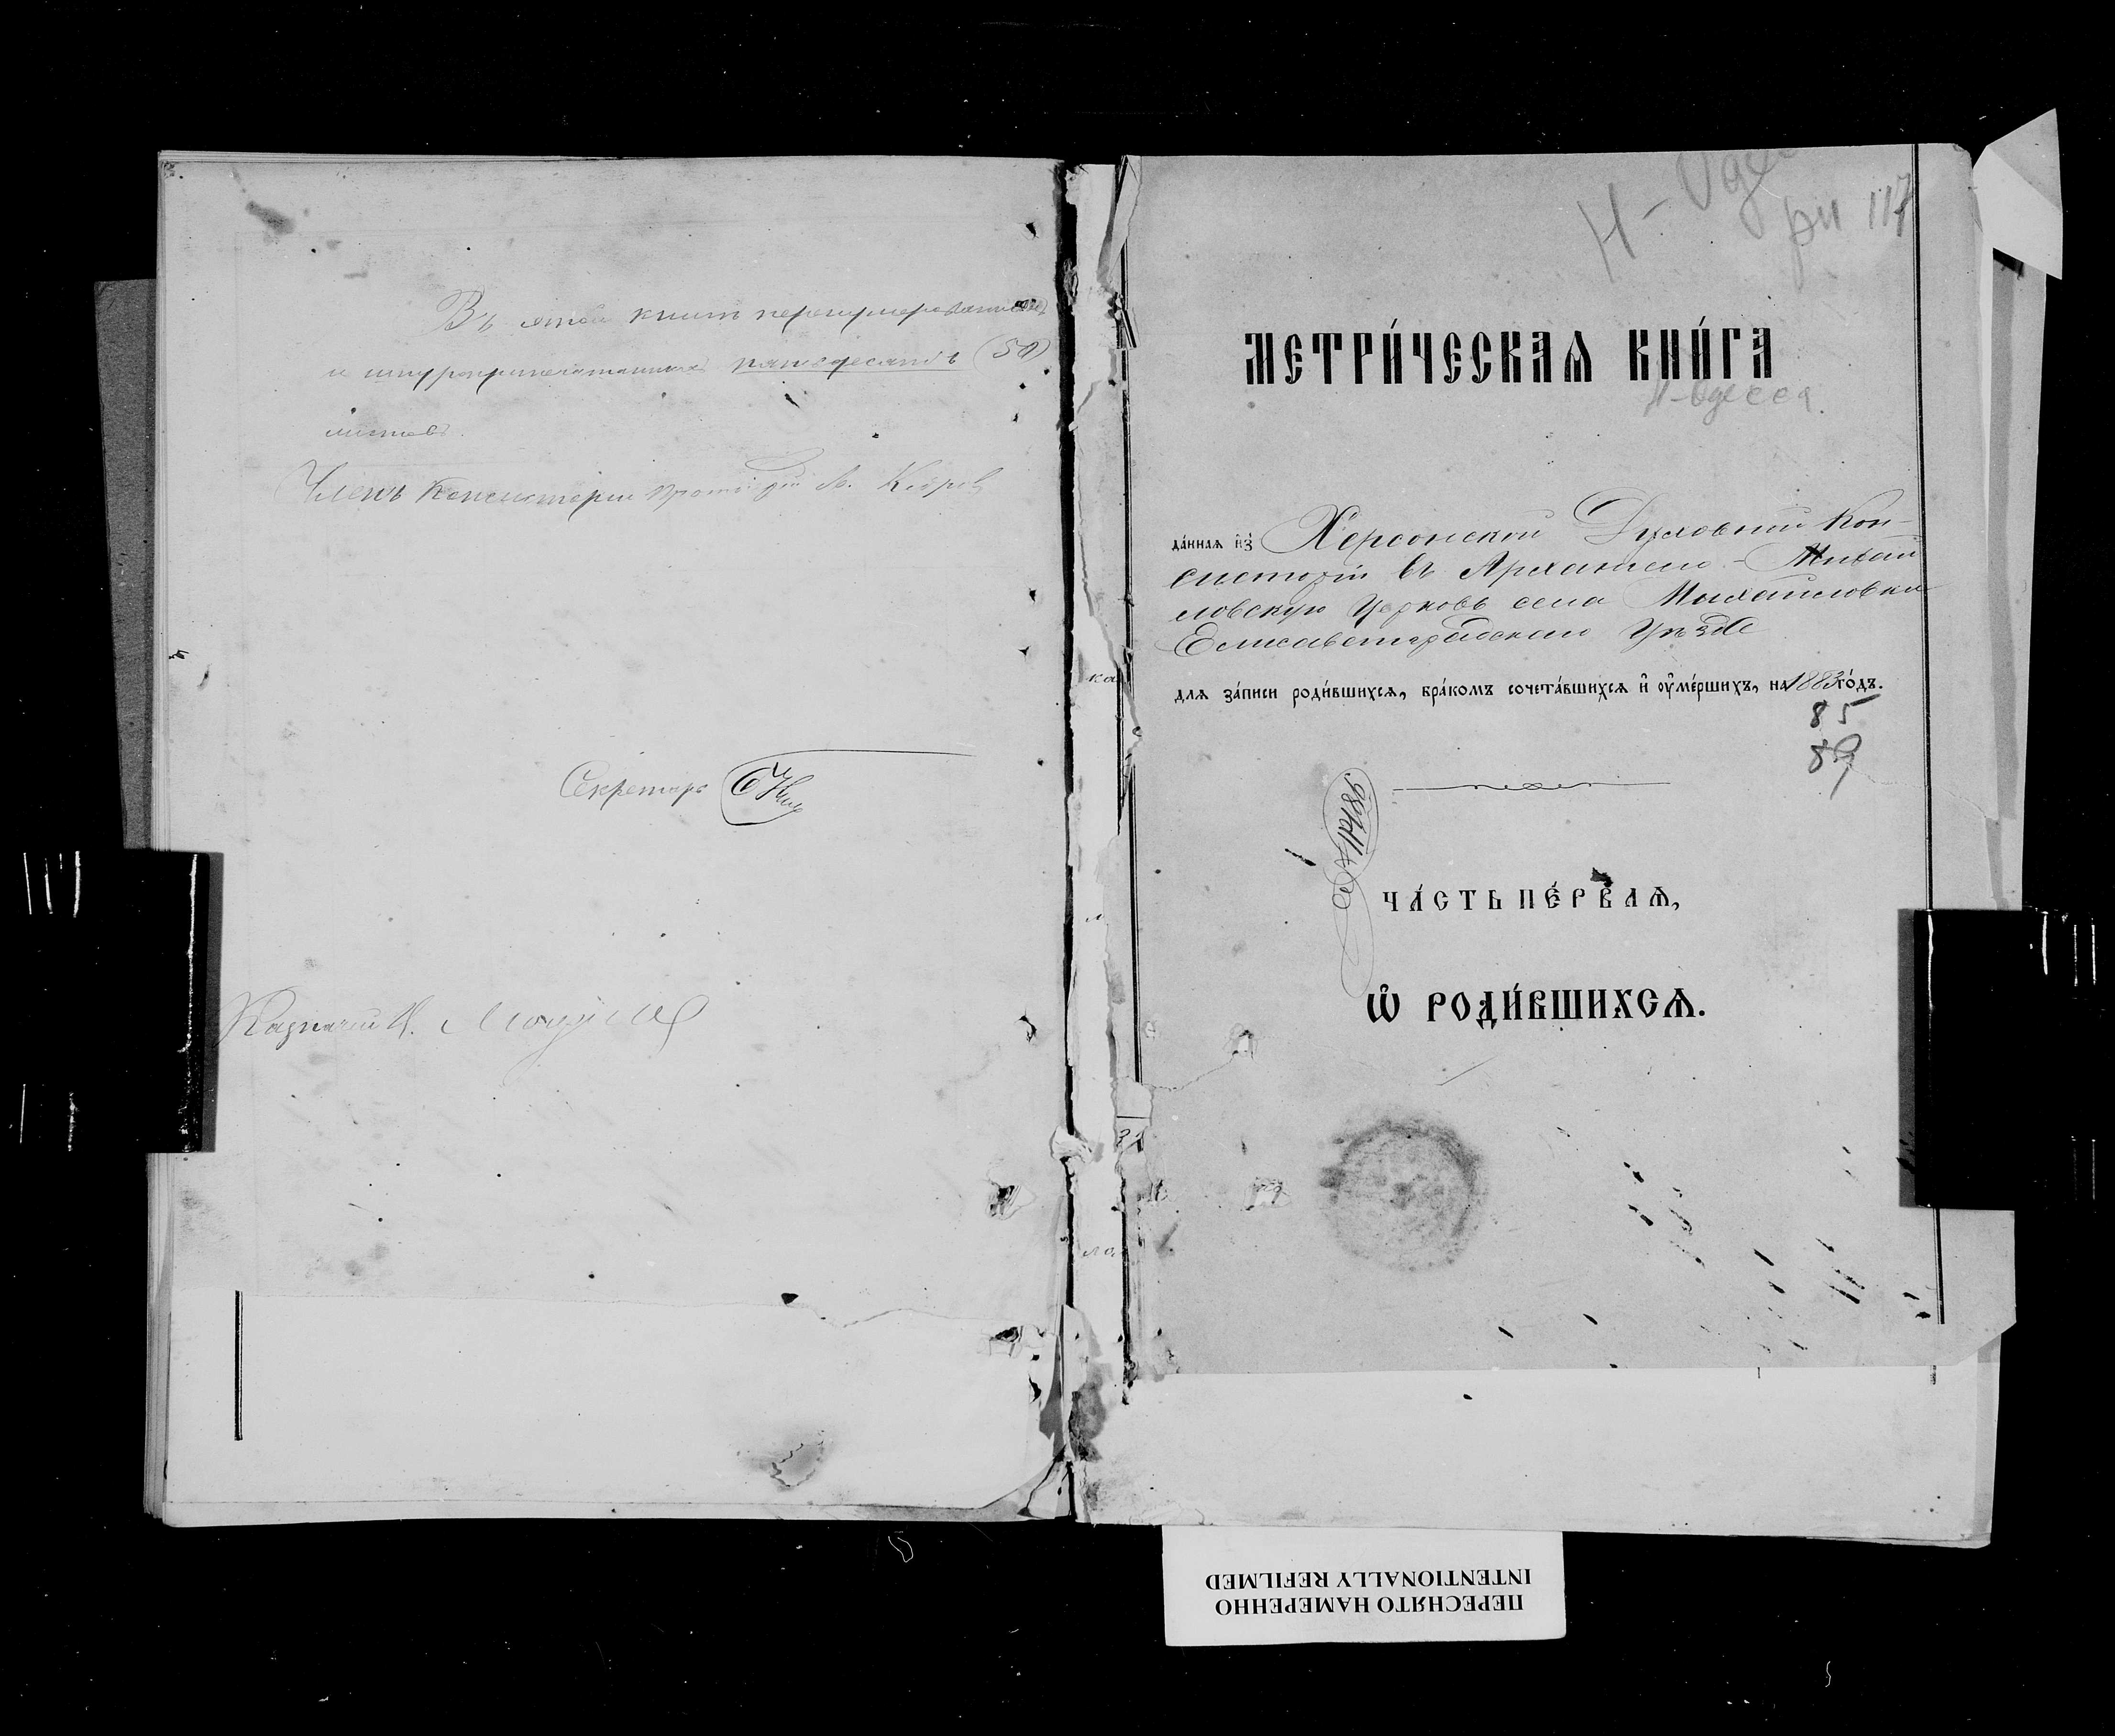 Въ этой книгѣ перенумерованныхъ
и шнуроприпечатанныхъ пятьдесятъ (50)
листовъ.
Членъ Консисторіи
Секретарь
Казначей
Н-Оде
рп 117
МЕТРИ́ЧЕСКАѦ КНИ́ГА
Н-Одесса.
да́ннаѧ и҆з̾ Херсонской Духовной Кон-
систоріи въ Архангело-Михай
ловскую церковь села Михайловки
Елисаветградскаго Уѣзда
длѧ за́писи роди́вшихсѧ, бра́комъ сочета́вшихсѧ и҆ ᲂу҆ме́ршихъ, на 1883 го́дъ.
85
89
ЧА́СТЬ ПЕ́РВАѦ,
Ѡ҆ РОДИ́ВШИХСѦ.
ПЕРЕСНЯТО НАМЕРЕННО
INTENTIONALLY REFILMED